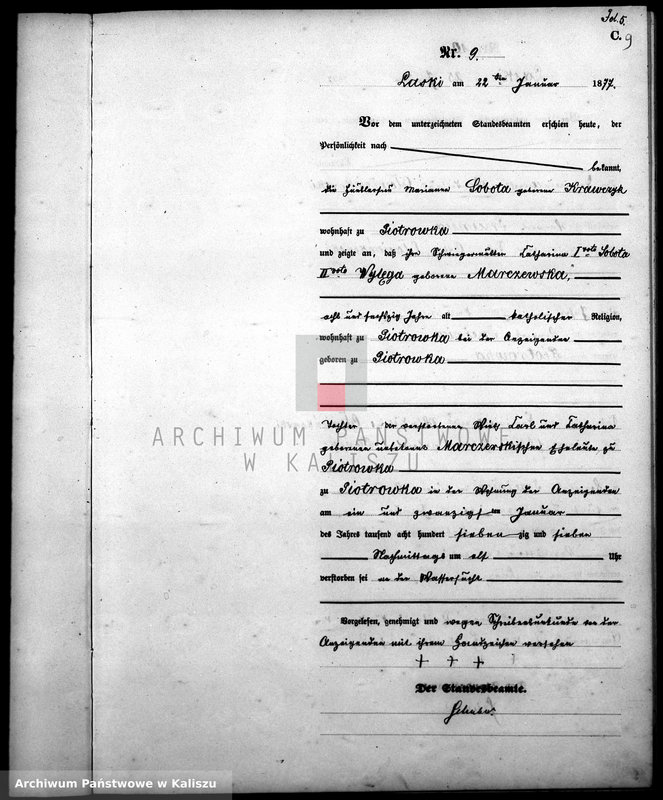 C.
9
Nr. 9.
Laski am 22 ten Januar 1877.
Vor dem unterzeichneten Standesbeamten erschien heute, der
Persönlichkeit nach
bekannt,
die Häuslersfrau Marianna Sobota geborene Krawczyk
wohnhaft zu Piotrowka
und zeigte an, daß ihre Schwiegermutter Catharina I voto Sobota
II voto Wylęga geborene Marczewska,
acht und sechszig Jahre alt katholischer Religion,
wohnhaft zu Piotrowka bei der Anzeigenden
geboren zu Piotrowka
Tochter der verstorbenen Carl und Catharina
geborenen unbekannt Eheleute zu
Piotrowka
zu Piotrowka in der Wohnung der Anzeigenden
am ein und zwanzigsten Januar
des Jahres tausend acht hundert sieben zig und sieben
Nachmittags um elf Uhr
verstorben sei an der Wassersucht
Vorgelesen, genehmigt und wegen Schreibensunkunde von der
Anzeigenden mit ihrem Handzeichen versehen
+ + +
Der Standesbeamte.
ARCHIWUM PAŃSTWOWE
W KALISZU
Archiwum Państwowe w Kaliszu